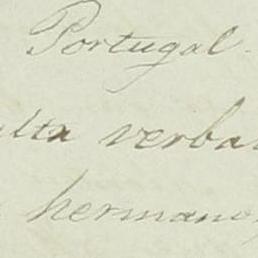 Portugal.
ulta verbal
hermano,